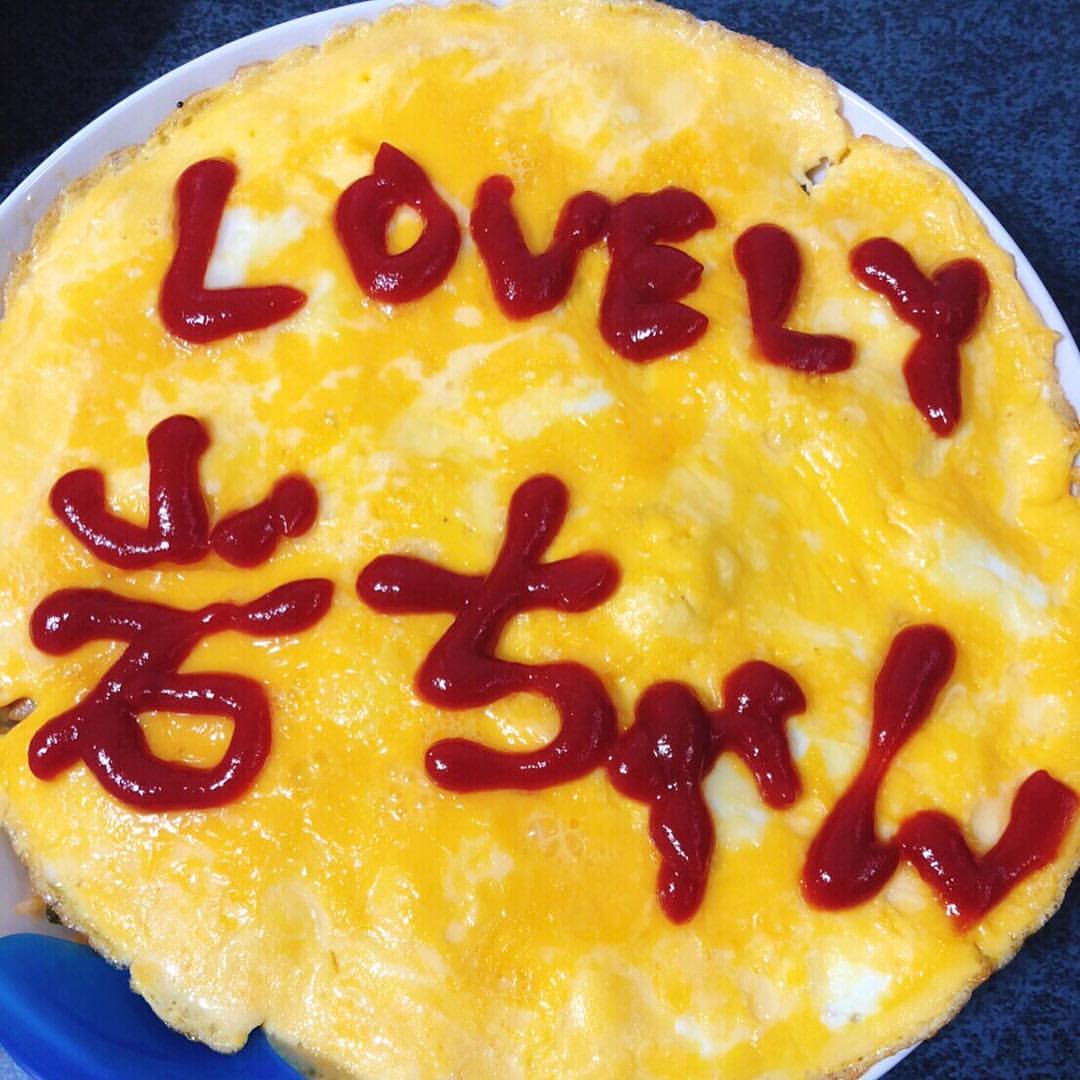 LOVELY
岩ちゃん